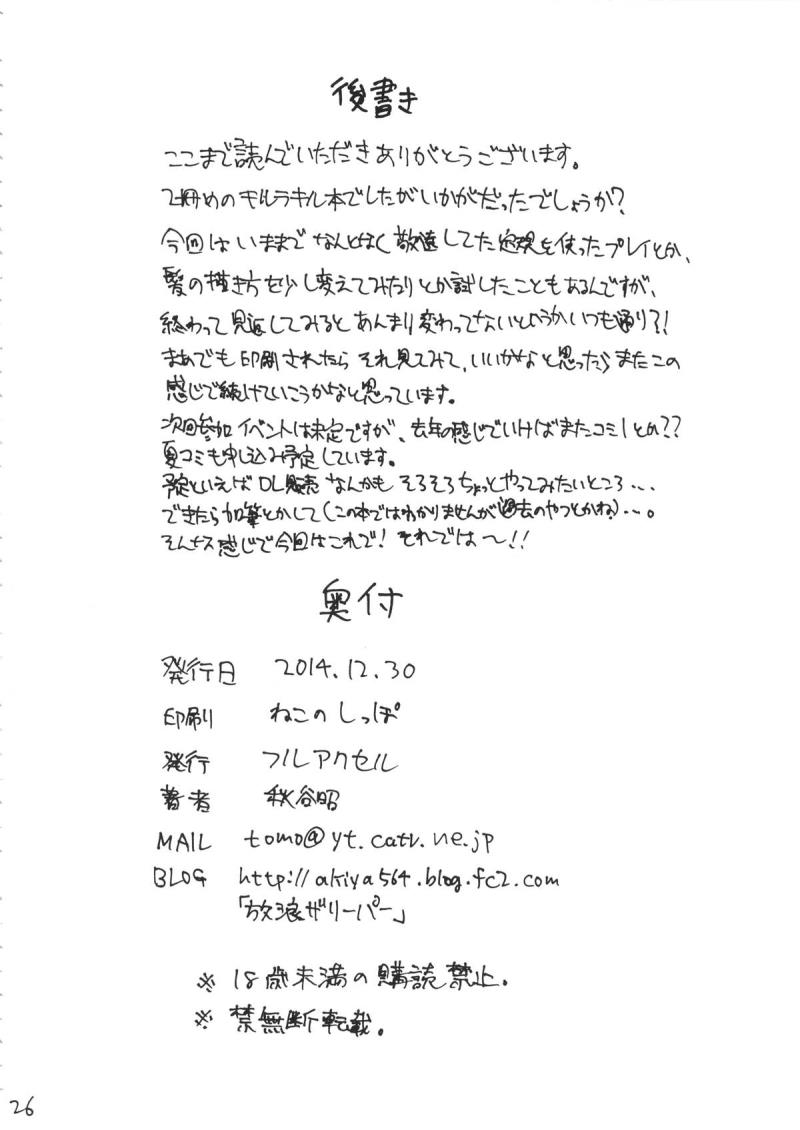 後書き
ここまで読んでいただきありがとうございます。
2冊めのキルラキル本でしたがいかがだったでしょうか?
今回はいままでなんとなく敬遠してた定規を使ったプレイとか、
髪の描き方を少し変えてみたりとか試したこともあるんですが、
終わって見返してみるとあんまり変わってないというかいつも通り?!
まぁでも印刷されたらそれ見てみて、いいかなと思ったらまたこの
感じで続けていこうかなと思っています。
次回参加イベントは未定ですが、去年の感じでいけばまたコミ1とか??
夏コミも申し込み予定しています。
予定といえばDL販売なんかもそろそろちょっとやってみたいところ・・・
できたら加筆とかして(この本ではわかりませんが過去のやつとかね)・・・。
そんナス感じで今回はこれで!それでは〜!!
奥付
発行日 2014.12.30
印刷 ねこのしっぽ
発行 フルアクセル
著者 秋谷昭
MAIL tomo@yt.catv.ne.jp
BLOG http://akiya564.blog.fc2.com
「放浪ザリーパー」
※18歳未満の購読禁止。
※禁無断転載。
26